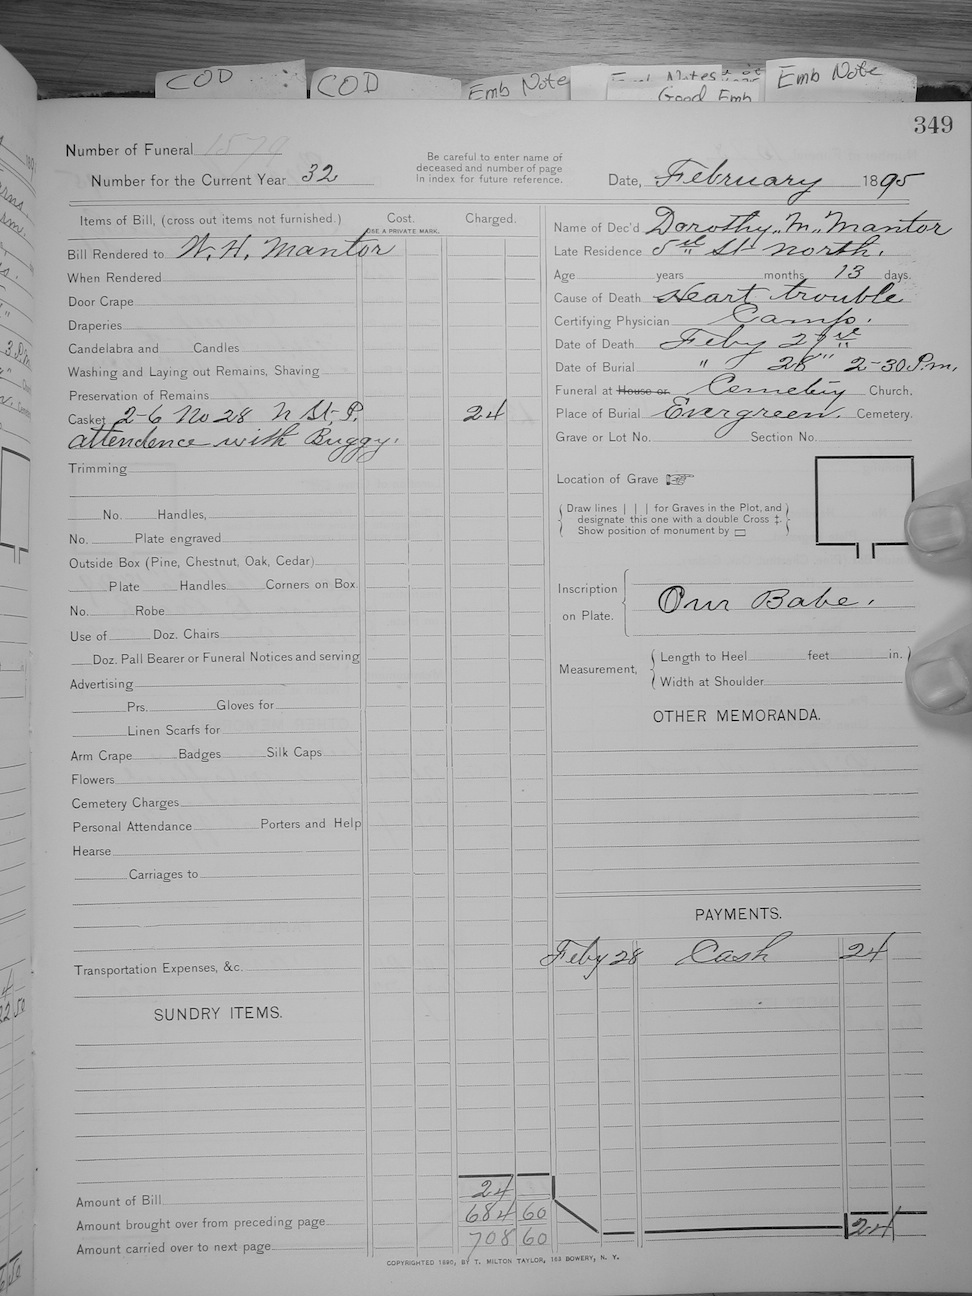 COD
COD
Emb Note
Emb Notes
Good Emb
Emb Note
349
Number of Funeral 1579
Number for the Current Year 32
Be careful to enter name of
deceased and number of page
in index for future reference.
Date, February 1895
Items of Bill, (cross out items not furnished.) Cost. Charged.
USE A PRIVATE MARK.
Bill Rendered to W. H. Mantor
When Rendered
Door Crape
Draperies
Candelabra and Candles
Washing and Laying out Remains, Shaving
Preservation of Remains
Casket 2-6 No 28 N St. P. 24
attendence with Buggy.
Trimming
No. Handles,
No. Plate engraved
Outside Box (Pine, Chestnut, Oak, Cedar)
Plate Handles Corners on Box
No. Robe
Use of Doz. Chairs
Doz. Pall Bearer or Funeral Notices and serving
Advertising
Prs. Gloves for
Linen Scarfs for
Arm Crape Badges Silk Caps
Flowers
Cemetery Charges
Personal Attendance Porters and Help
Hearse
Carriages to
Transportation Expenses, &c.
SUNDRY ITEMS.
Amount of Bill 24
Amount brought over from preceding page 684 60
Amount carried over to next page 708 60
Name of Dec'd Dorothy. M. Mantor
Late Residence St North.
Age years months 13 days.
Cause of Death Heart trouble
Certifying Physician Camp.
Date of Death Feby 27
Date of Burial " 28" 2-30 P.m.
Funeral at House or Cemetery Church.
Place of Burial Evergreen. Cemetery.
Grave or Lot No. Section No.
Location of Grave
Draw lines | | | for Graves in the Plot, and
designate this one with a double Cross ‡.
Show position of monument by
Inscription
on Plate.
Our Babe.
Measurement,
Length to Heel feet in.
Width at Shoulder
OTHER MEMORANDA.
PAYMENTS.
Feby 28 Cash 24
24
COPYRIGHTED 1890, BY T. MILTON TAYLOR, 183 BOWERY, N. Y.